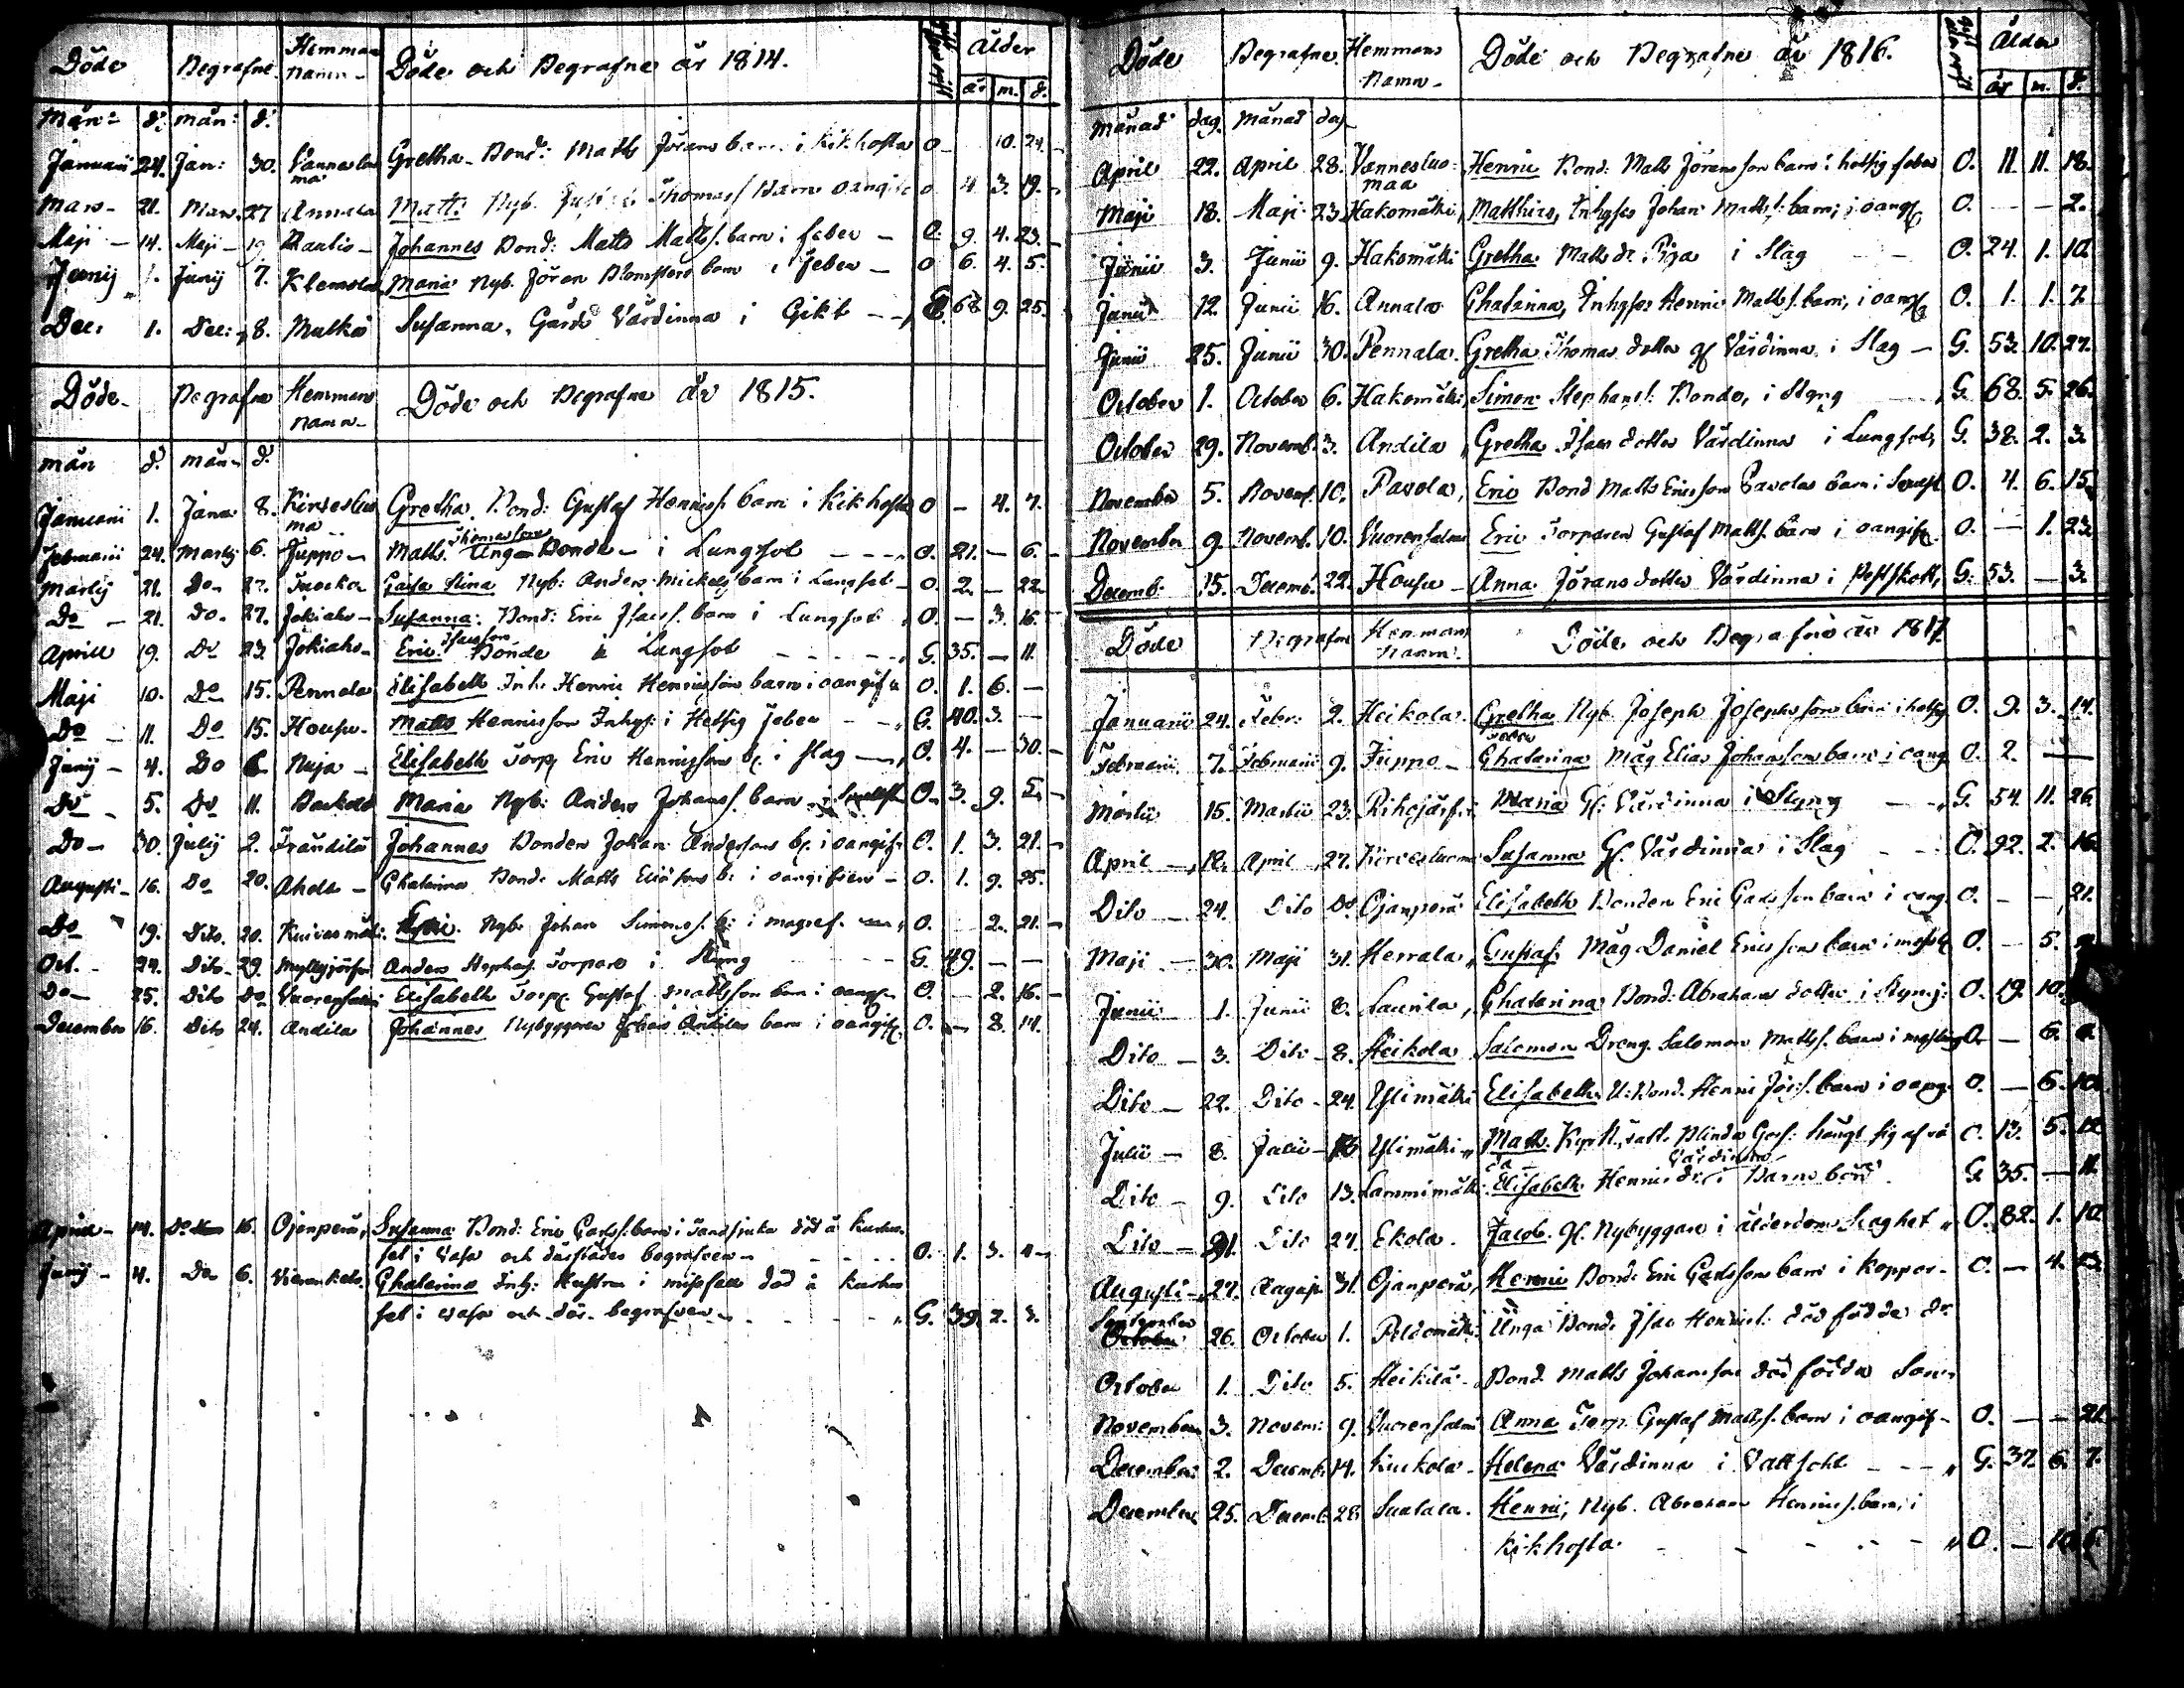 Döde Begrafne Hemmans Namn Döde och Begrafne år 1814. Ålder
år m. d.
Mån: d: mån: d:
Januarii 24. Jan: 30. Gretha Bond: Matts Jörans barn i Kikhosta O 10. 24.
Mars 21. Mars 27 Annala Matts Nyb. Thomass barn oangifv O 4. 3. 19.
Maji 14. Maji 19 Rautio Johannes Bond: Matts Mattss. barn i feber O. 9. 4. 23.
Junij 1. Junij 7. Klemola Maria Nyb. Jöran Blomsters barn i feber O 6. 4. 5.
Dec: 1. Dec: 8. Mulka Susanna, Gårds Värdinna i Gikt 68 9. 25.
Döde Begrafne Hemmans Namn Döde och Begrafne år 1815.
mån d: mån d:
Januarii 1. Janu 8. Kirvesluoma Gretha Bond: Gustaf Henrics. barn i Kikhosta O – 4. 7.
Februarii 24. Martij 6. Juppo Matts Thomasson Unga Bonde i Lungsot O. 21. – 6.
Martij 21. Do 27. Caisa Stina Nyb: Anders Mickels barn i Lungsot O. 2. – 22.
Do 21. Do. 27. Jokiaho Susanna: Bond: Eric Isacs. barn i Lungsot O. – 3. 16.
Aprill 19. Do 23. Jokiaho Eric Isacsson Bonde i Lungsot G. 35. – 11.
Maji 10. Do 15. Pennala Elisabeth Inh. Henric Henricsson barn i oangifv O. 1. 6. –
Do 11. Do 15. Houpu Matts Henricsson Inhys: i Hetsig feber G. 40. 3. –
Junij 4. Do 6 Nuja Elisabeth Torp. Eric Henricssons b. i slag O. 4. – 30.
Do 5. Do 11. Maria Nyb: Anders Johanss. barn i O. 3. 9.
Do 30. Julij 2. Johannes Bonden Johan Anderssons b. i oangifv O. 1. 3. 21.
Augusti 16. Do 20. Ahola Chatarina Bond: Matts Eliæsons b: i oangifven O. 1. 9. 25.
Do 19. Dito 20. Kuivasmäki Nyb. Johan Simons. b: i magref O. 2. 21.
Oct. 24. Dito 29. Myllyjärfvi Anders Stephas. Torpare i Styng G. 49. – –
Do 25. Dito Do Vuorensalmi Elisabeth Torp: Gustaf Mattsson barn i oangifv O. – 2. 16.
December 16. Dito 24. Andila Johannes Nybyggaren Johan Andilas barn i oangifv O. – 8. 14.
Aprill 14. Do 16. Ojanperä, Susanna Bond: Eric Carlss. barn i död å
set i Vasa och därstädes begrafven O. 1. 3.
Junij 4. Do 6. Chatarina Inh: Hustru i missfall död å
set i Vasa och där begrafven G. 39. 2. 3.
Döde Begrafne Hemmans Namn Döde och Begrafne år 1816. Ålder
år m. d.
Månad dag. Månad dag
April 22. April 28. Vannesluomaa Henric Bond. Matts Jöransson barn i hetsig feber O. 11. 11. 18.
Maji 18. Maji 23. Hakomäki, Matthias, Inhyses Johan Matts. barn, i oangf O. – – 2.
Junii 3. Junii 9. Hakomäki Gretha Matts dr. Piga i Slag O. 24. 1. 10.
Junii 12. Junii 16. Annala Chatarina, Inhyses Henric Mattss. barn, i oangf O. 1. 1. 7.
Junii 25. Junii 30. Pennala. Gretha Thomas dotter gl Värdinna i Slag G. 53. 10. 27.
October 1. October 6. Hakomäki, Simon Stephans. Bonde, i styng G. 68. 5. 26.
October 29. Novemb. 3. Andila, Gretha Isacs dotter Värdinna i Lungsot, G. 38. 2. 3.
November 5. Novemb. 10. Pavola, Eric Bond Matts Ericsson Pavolas barn i O. 4. 6. 15
November 9. Novemb. 10. Vuorensalmi Eric Torparen Gustaf Mattss. barn i oangif. O. – 1. 23.
Decemb: 15. Decemb. 22. Houpu Anna Jörans dotter Värdinna i G: 53. – 3.
Döde Begrafne Hemmans Namn. Döde och Begrafne år 1817
Januarii 24. Febr: 2. Heikola. Gretha Nyb. Joseph Josephsson barn i hetsig O. 9. 3. 14.
feber
Februarii 7. Februarii 9. Juppo Chatarina Måg Elias Johansson barn i oang O. 2. –
Martii 15. Martii 23. Maria Gl: Värdinna i Styng G. 54. 11. 26.
April 18. April 27. Kirveslueoma Susanna Gl. Värdinna i Slag O. 92. 2. 16.
Dito 24. Dito Do. Ojanperä Elisabeth Bonden Eric Carlsson barn i oang O. – – 21.
Maji 30. Maji 31. Herrala, Gustaf Måg Daniel Ericsson barn i O. – 5.
Junii 1. Junii 8. Laurila, Chatarina Bond: Abrahams dotter i styng: O. 19. 10.
Dito 3. Dito 8. Heikola Salomon Dreng. Salomon Mattss. barn i O. – 6.
Dito 22. Dito 24. Ylimäki Elisabeth U. Bond. Henric Jörs. barn i oang. O. – 6. 10.
Julii 8. Julii Ylimäki Matts O. 13. 5. 12
Dito 9. Dito 13. Lammimäki Elisabeth Henrics dr. Värdinna i Barns börd G 35. – 11.
Dito 21. Dito 27. Ekola. Jacob. gl. Nybyggare i ålderdoms svaghet O. 82. 1. 10
Augusti 27. August. 31. Ojanperä, Henric Bond: Eric Carlssons barn i koppor O. – 4.
September 26. October 1. Peldomäki. Unga Bond. Isac Henrics. död födda dr
October 1. Dito 5. Heikilä Bond. Matts Johansson död födda Son
November 3. Novem: 9. Vuorensalmi Anna Torp. Gustaf Mattss. barn i oangif O. – – 21.
December 2. Decemb. 14. Kuckola Helena Värdinna i Vattsot G. 37. 6. 7.
December 25. Decemb. 28 Luatala. Henric, Nyb. Abraham Henrics. barn, i
kikhosta O.